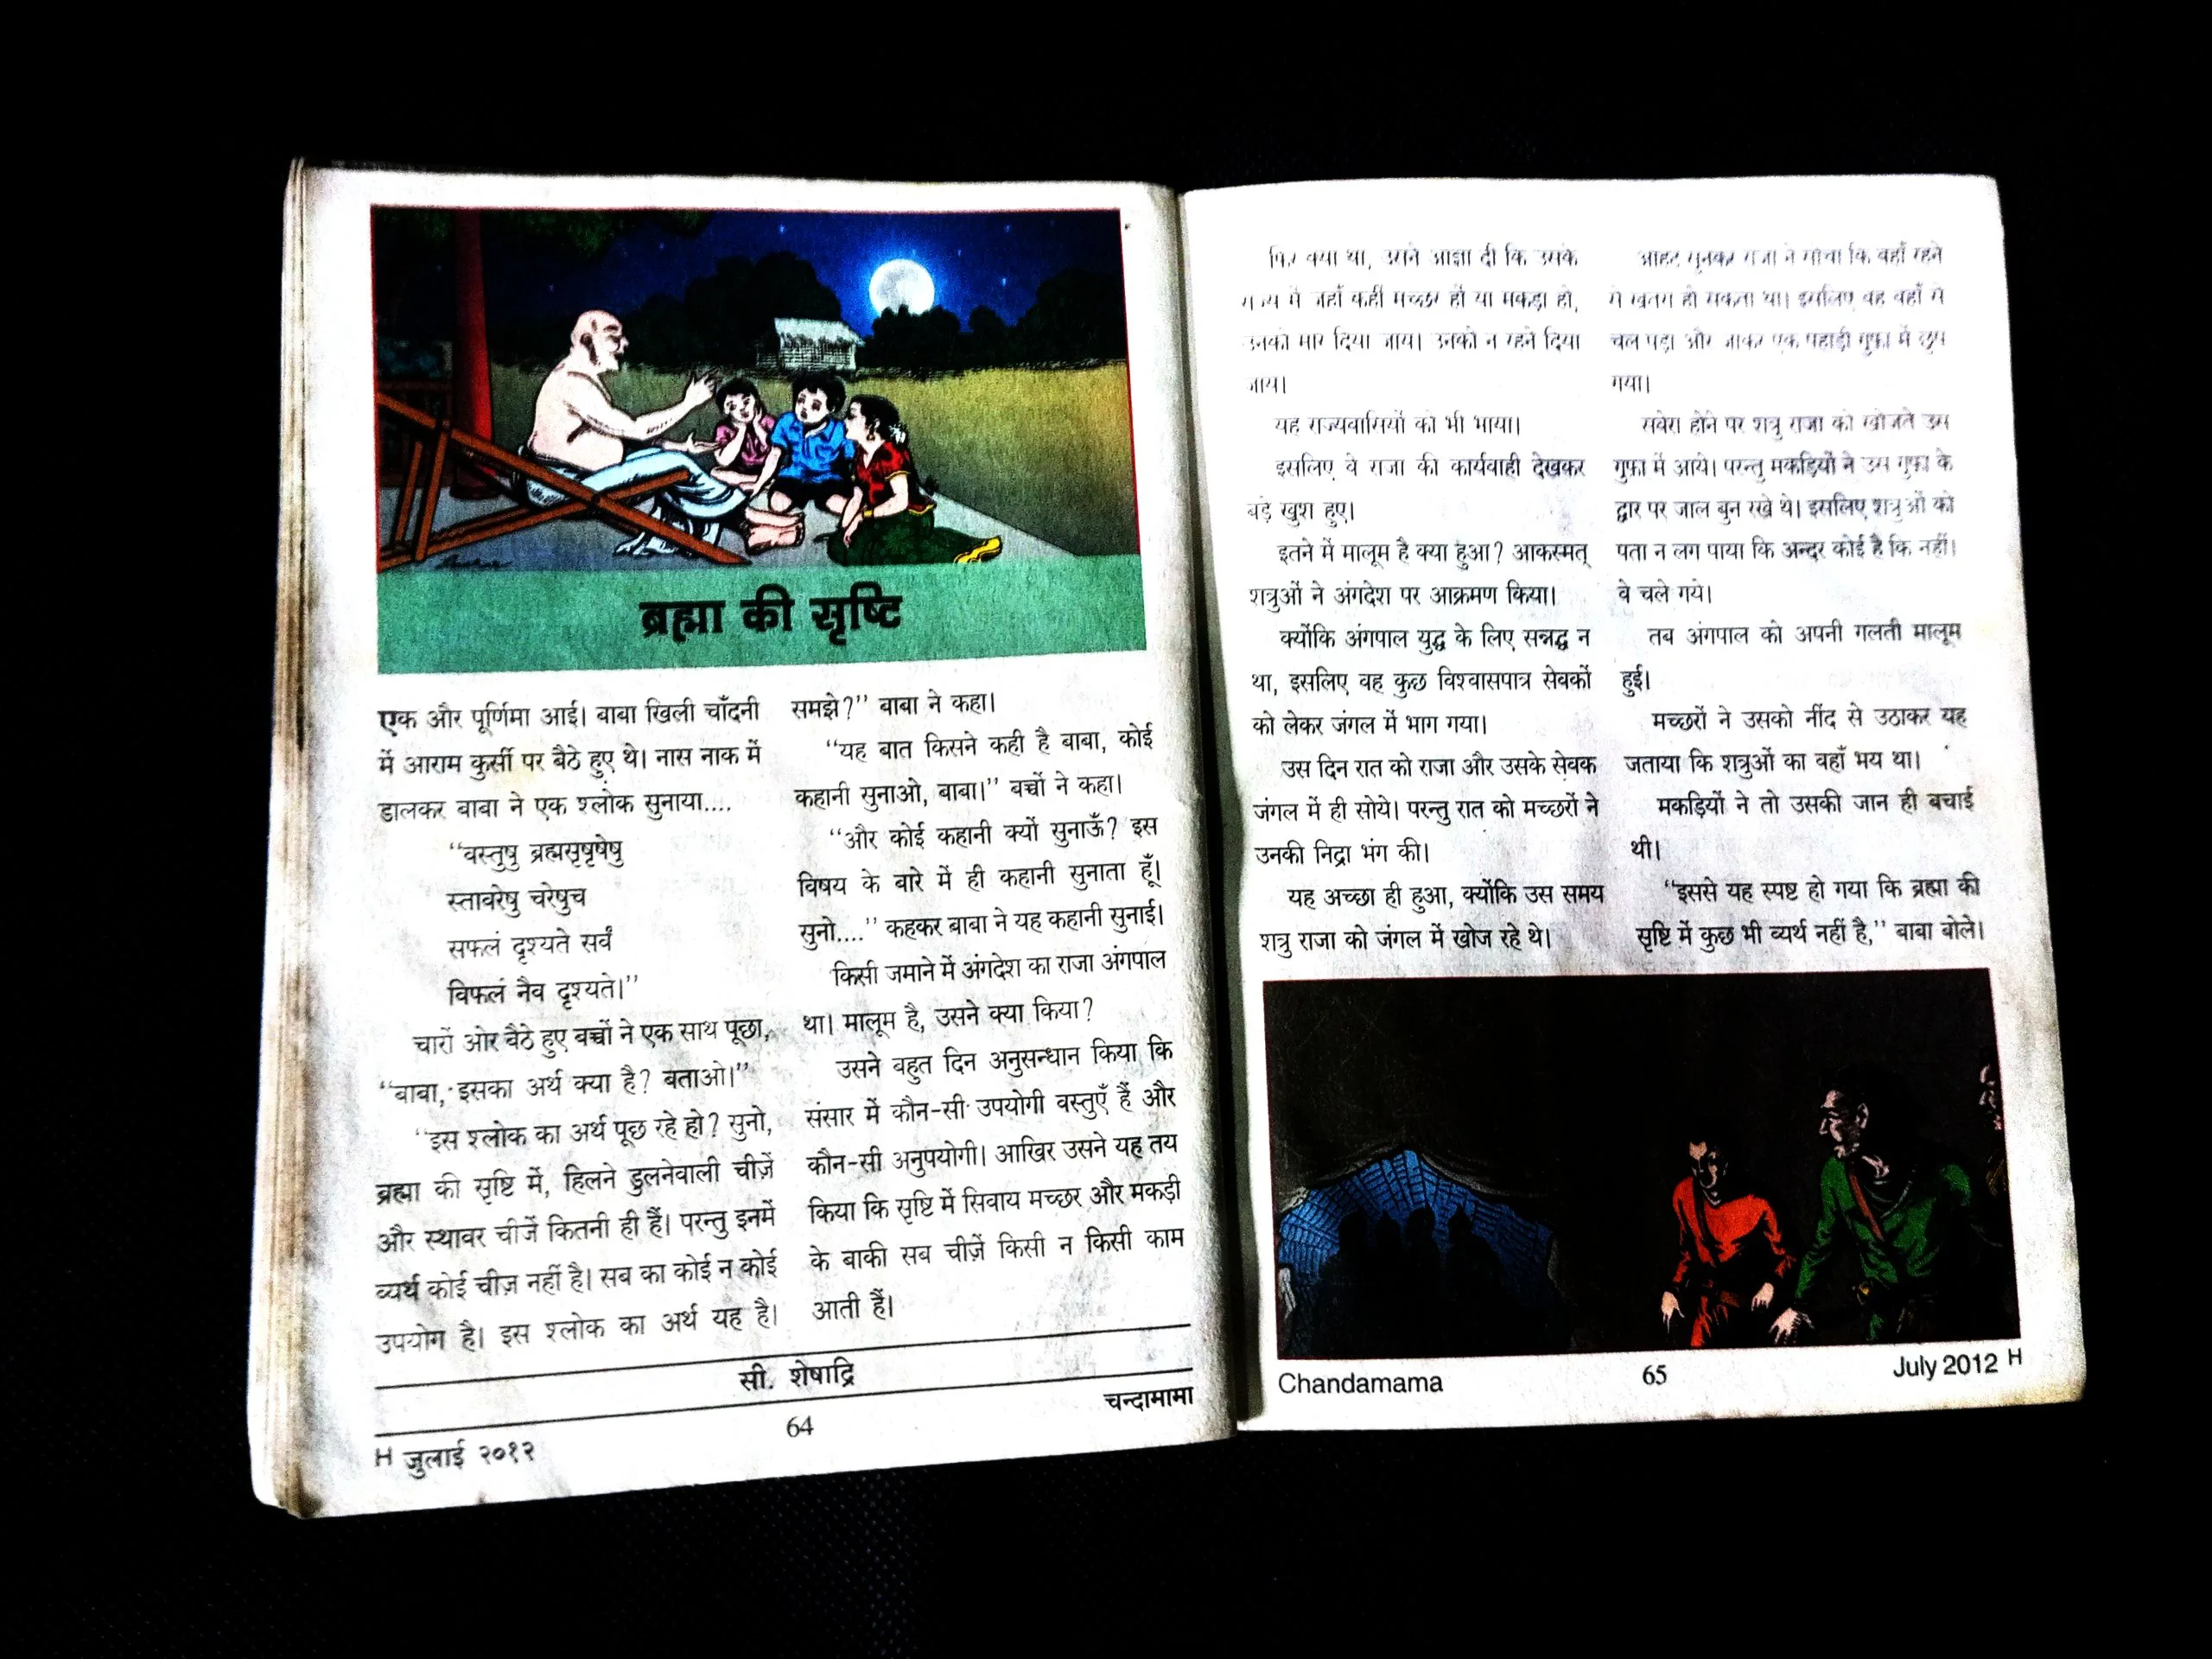 ब्रह्मा की सृष्टि
एक और पूर्णिमा आई। बाबा खिली चाँदनी
में आराम कुर्सी पर बैठे हुए थे। नास नाक में
डालकर बाबा ने एक श्लोक सुनाया....
“वस्तुषु ब्रह्मसृष्षेषु
स्तावरेषु चरेषुच
सफलं दृश्यते सर्वं
विफलं नैव दृश्यते।”
चारों ओर बैठे हुए बच्चों ने एक साथ पूछा,
“बाबा, इसका अर्थ क्या है? बताओ।”
“इस श्लोक का अर्थ पूछ रहे हो? सुनो,
ब्रह्मा की सृष्टि में, हिलने डुलनेवाली चीज़ें
और स्थावर चीजें कितनी ही हैं। परन्तु इनमें
व्यर्थ कोई चीज़ नहीं है। सब का कोई न कोई
उपयोग है। इस श्लोक का अर्थ यह है।
समझे?” बाबा ने कहा।
“यह बात किसने कही है बाबा, कोई
कहानी सुनाओ, बाबा।” बच्चों ने कहा।
“और कोई कहानी क्यों सुनाऊँ? इस
विषय के बारे में ही कहानी सुनाता हूँ।
सुनो....” कहकर बाबा ने यह कहानी सुनाई।
किसी जमाने में अंगदेश का राजा अंगपाल
था। मालूम है, उसने क्या किया?
उसने बहुत दिन अनुसन्धान किया कि
संसार में कौन-सी उपयोगी वस्तुएँ हैं और
कौन-सी अनुपयोगी। आखिर उसने यह तय
किया कि सृष्टि में सिवाय मच्छर और मकड़ी
के बाकी सब चीज़ें किसी न किसी काम
आती हैं।
सी. शेषाद्रि
H जुलाई २०१२
64
चन्दामामा
फिर क्या था, उसने आज्ञा दी कि उसके
राज्य में जहाँ कहीं मच्छर हो या मकड़ी हो,
उनको मार दिया जाय। उनको न रहने दिया
जाय।
यह राज्यवासियों को भी भाया।
इसलिए वे राजा की कार्यवाही देखकर
बड़े खुश हुए।
इतने में मालूम है क्या हुआ? आकस्मत्
शत्रुओं ने अंगदेश पर आक्रमण किया।
क्योंकि अंगपाल युद्ध के लिए सन्नद्ध न
था, इसलिए वह कुछ विश्वासपात्र सेवकों
को लेकर जंगल में भाग गया।
उस दिन रात को राजा और उसके सेवक
जंगल में ही सोये। परन्तु रात को मच्छरों ने
उनकी निद्रा भंग की।
यह अच्छा ही हुआ, क्योंकि उस समय
शत्रु राजा को जंगल में खोज रहे थे।
आहट सुनकर राजा ने सोचा कि वहाँ रहने
से खतरा हो सकता था। इसलिए वह वहाँ से
चल पड़ा और जाकर एक पहाड़ी गुफा में छुप
गया।
सवेरा होने पर शत्रु राजा को खोजते उस
गुफा में आये। परन्तु मकड़ियों ने उस गुफा के
द्वार पर जाल बुन रखे थे। इसलिए शत्रुओं को
पता न लग पाया कि अन्दर कोई है कि नहीं।
वे चले गये।
तब अंगपाल को अपनी गलती मालूम
हुई।
मच्छरों ने उसको नींद से उठाकर यह
जताया कि शत्रुओं का वहाँ भय था।
मकड़ियों ने तो उसकी जान ही बचाई
थी।
“इससे यह स्पष्ट हो गया कि ब्रह्मा की
सृष्टि में कुछ भी व्यर्थ नहीं है,” बाबा बोले।
Chandamama
65
July 2012 H